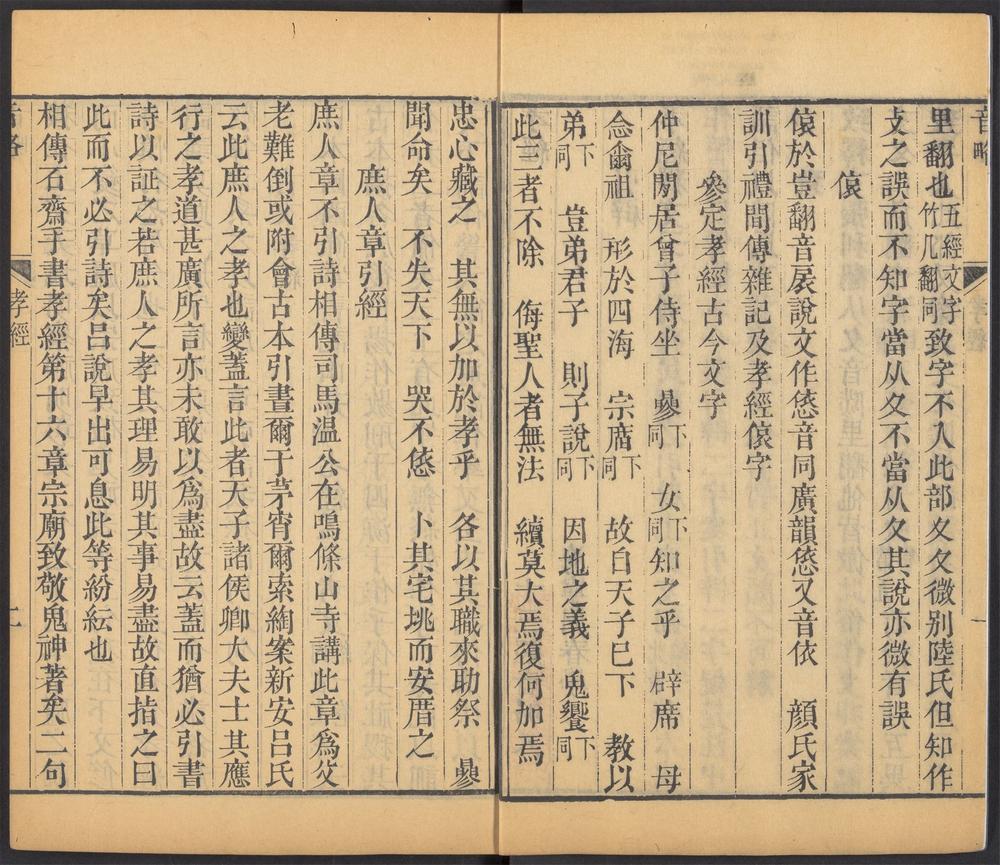 音略
一
里翻也五經文字竹几翻同致字不入此部夊夂微别陸氏但知作
攴之誤而不知字當从夊不當从夂其說亦微有誤
偯
偯於豈翻音扆說文作㥋音同廣韻㥋又音依　顏氏家
訓引禮間傳雜記及孝經偯字
參定孝經古今文字
仲尼閒居曾子侍坐　曑下同　女下同知之乎　辟席　毋
念爾祖　形於四海　宗庿下同　故自天子已下　教以
弟下同　豈弟君子　則子說下同　因地之義　鬼饗下同
此三者不除　侮聖人者無法　續莫大焉復何加焉
忠心藏之　其無以加於孝乎　各以其職來助祭　曑
聞命矣　不失天下　哭不㥋　卜其宅垗而安厝之
庶人章引經
庶人章不引詩相傳司馬温公在鳴條山寺講此章爲父
老難倒或附會古本引晝爾于茅宵爾索綯案新安吕氏
云此庶人之孝也變蓋言此者天子諸侯卿大夫士其應
行之孝道甚廣所言亦未敢以爲盡故云蓋而猶必引書
詩以証之若庶人之孝其理易明其事易盡故直指之曰
此而不必引詩矣吕說早出可息此等紛紜也
相傳石齋手書孝經第十六章宗廟致敬鬼神著矣二句
音略
孝經
二